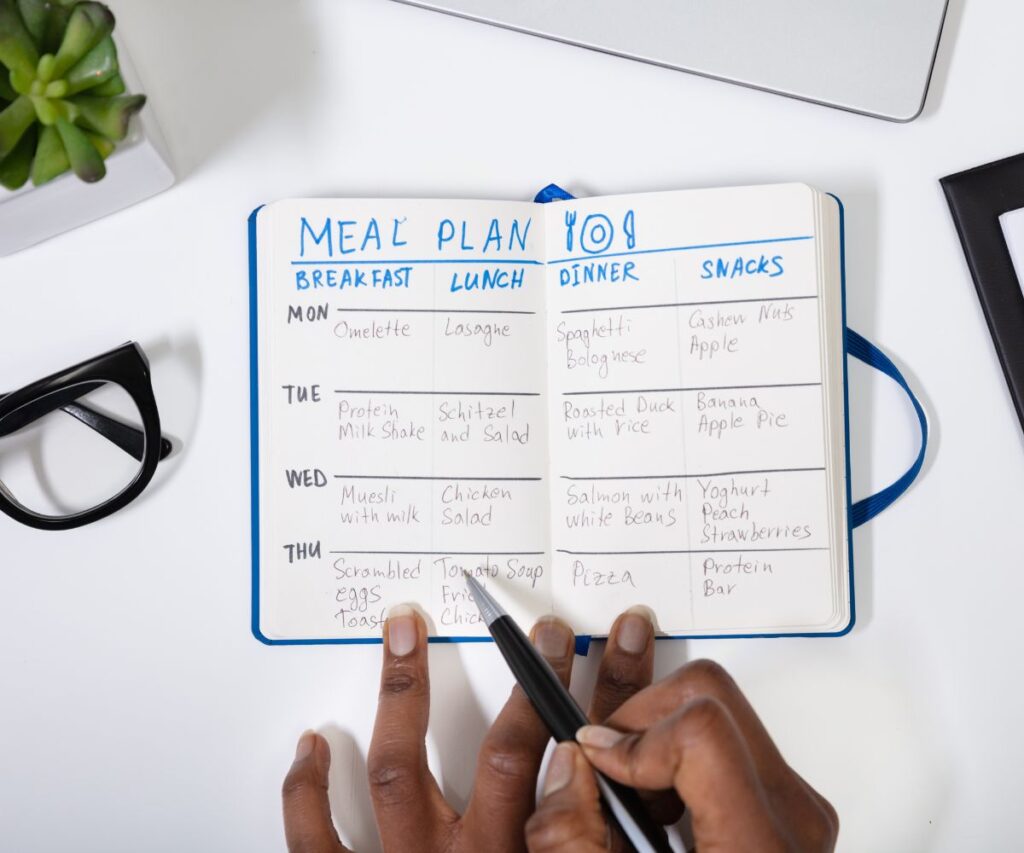 MEAL PLAN
BREAKFAST
LUNCH
DINNER
SNACKS
MON
Omelette
Lasagne
Spaghetti
Bolognese
Cashew Nuts
Apple
TUE
Protein
Milk Shake
Schitzel
and Salad
Roasted Duck
with rice
Banana
Apple Pie
WED
Muesli
with milk
Chicken
Salad
Salmon with
white Beans
Yoghurt
Peach
Strawberries
THU
Scrambled
eggs
Toast
Tomato Soup
Pizza
Protein
Bar